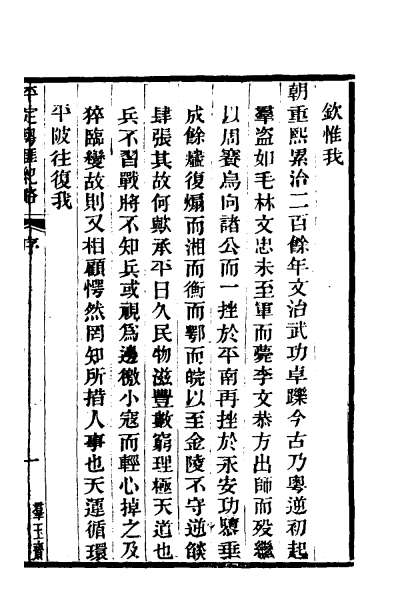 欽惟我
朝重熙累治二百餘年文治武功卓躒今古乃粵逆初起
羣盜如毛林文忠未至軍而薨李文恭方出師而歿繼
以周賽烏向諸公而一挫於平南再挫於永安功隳垂
成餘燼復煽而湘而衡而鄂而皖以至金陵不守逆燄
肆張其故何歟承平日久民物滋豐數窮理極天道也
兵不習戰將不知兵或視為邊徼小寇而輕心掉之及
猝臨變故則又相顧愕然罔知所措人事也天運循環
平陂往復我
平定粵匪紀略
序
一
羣玉齋